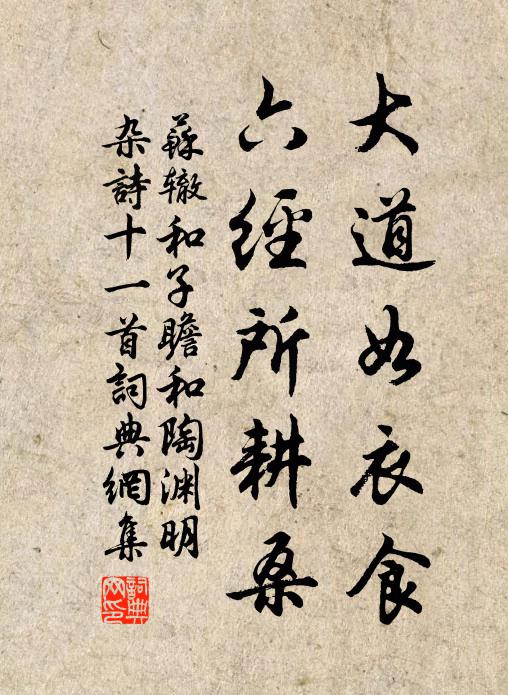 大道如衣食
六經所耕桑
蘇辙和子瞻和陶淵明
杂詩十一首詞典網集
詞典網印